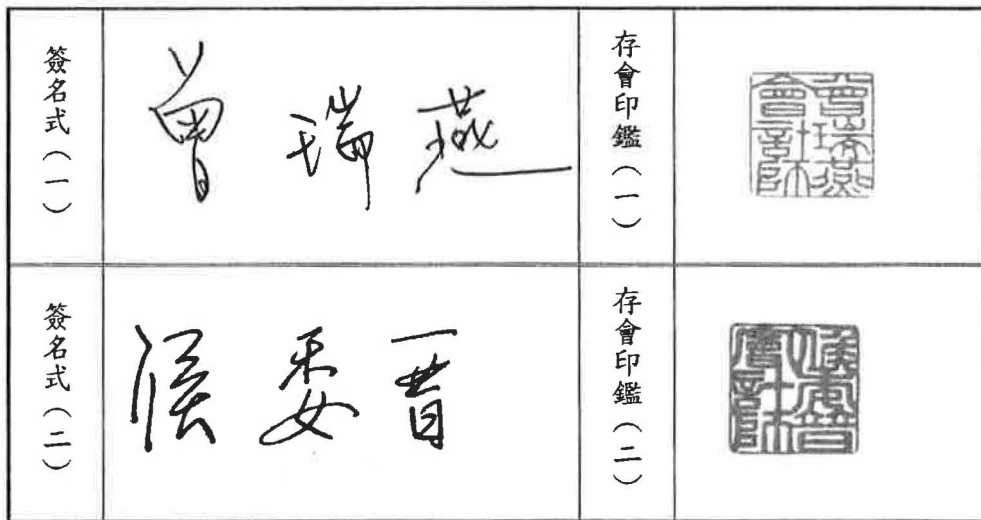 簽名式（一）
曾瑞燕
存會印鑑（一）
曾瑞燕會計師
簽名式（二）
侯委晋
存會印鑑（二）
侯委晋會計師